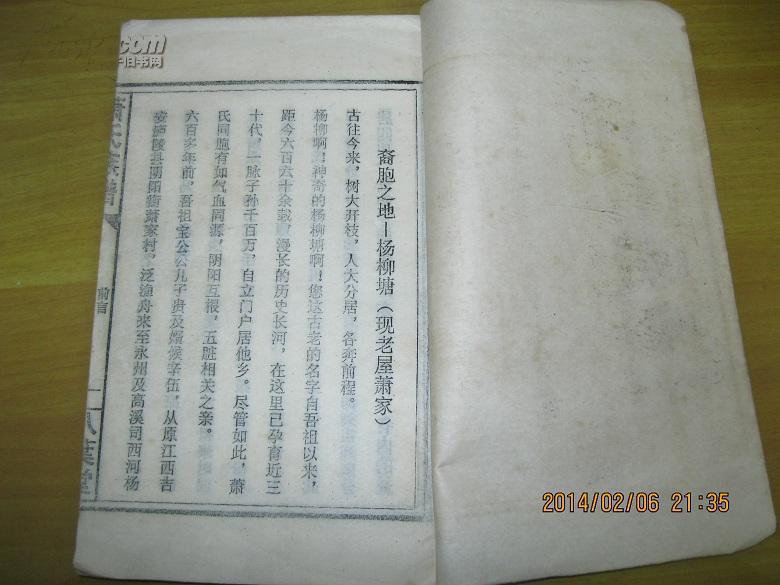 裔胞之地—杨柳塘（现老屋萧家）
古往今来，树大开枝，人大分居，各奔前程。
杨柳啊！神奇的杨柳塘啊！您这古老的名字自吾祖以来，
距今六百六十余载，漫长的历史长河，在这里已孕育近三
十代，一脉子孙千百万，自立门户居他乡。尽管如此，萧
氏同胞有如气血同源，阴阳互根，五脏相关之亲。
六百多年前，吾祖宝公公儿子贵及婿候辛伍，从原江西吉
安庐陵县阴阳街萧家村，泛渔舟来至永州及高溪司西河杨
萧氏族谱
前言
一
八叶堂
.com
旧书网
2014/02/06 21:35